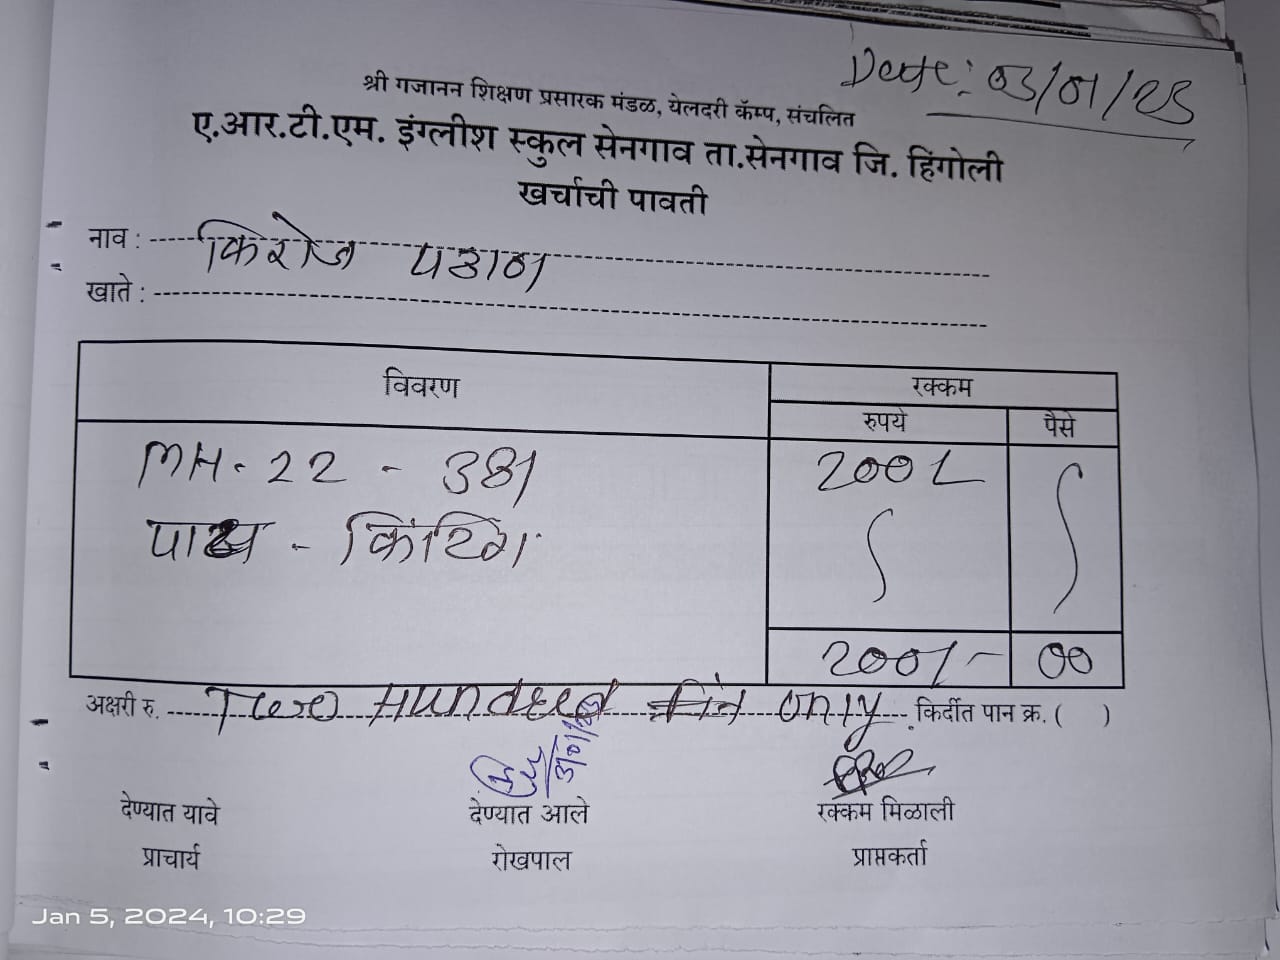 Date: 03/01/23
श्री गजानन शिक्षण प्रसारक मंडळ, येलदरी कॅम्प, संचलित
ए.आर.टी.एम. इंग्लीश स्कुल सेनगाव ता.सेनगाव जि. हिंगोली
खर्चाची पावती
नाव : किरोज पठाण
खाते :
विवरण रक्कम
रुपये पैसे
MH-22 - 381 200/-
200/- 00
अक्षरी रु. Two Hundred only किर्दीत पान क्र. ( )
देण्यात यावे देण्यात आले रक्कम मिळाली
प्राचार्य रोखपाल प्राप्तकर्ता
Jan 5, 2024, 10:29